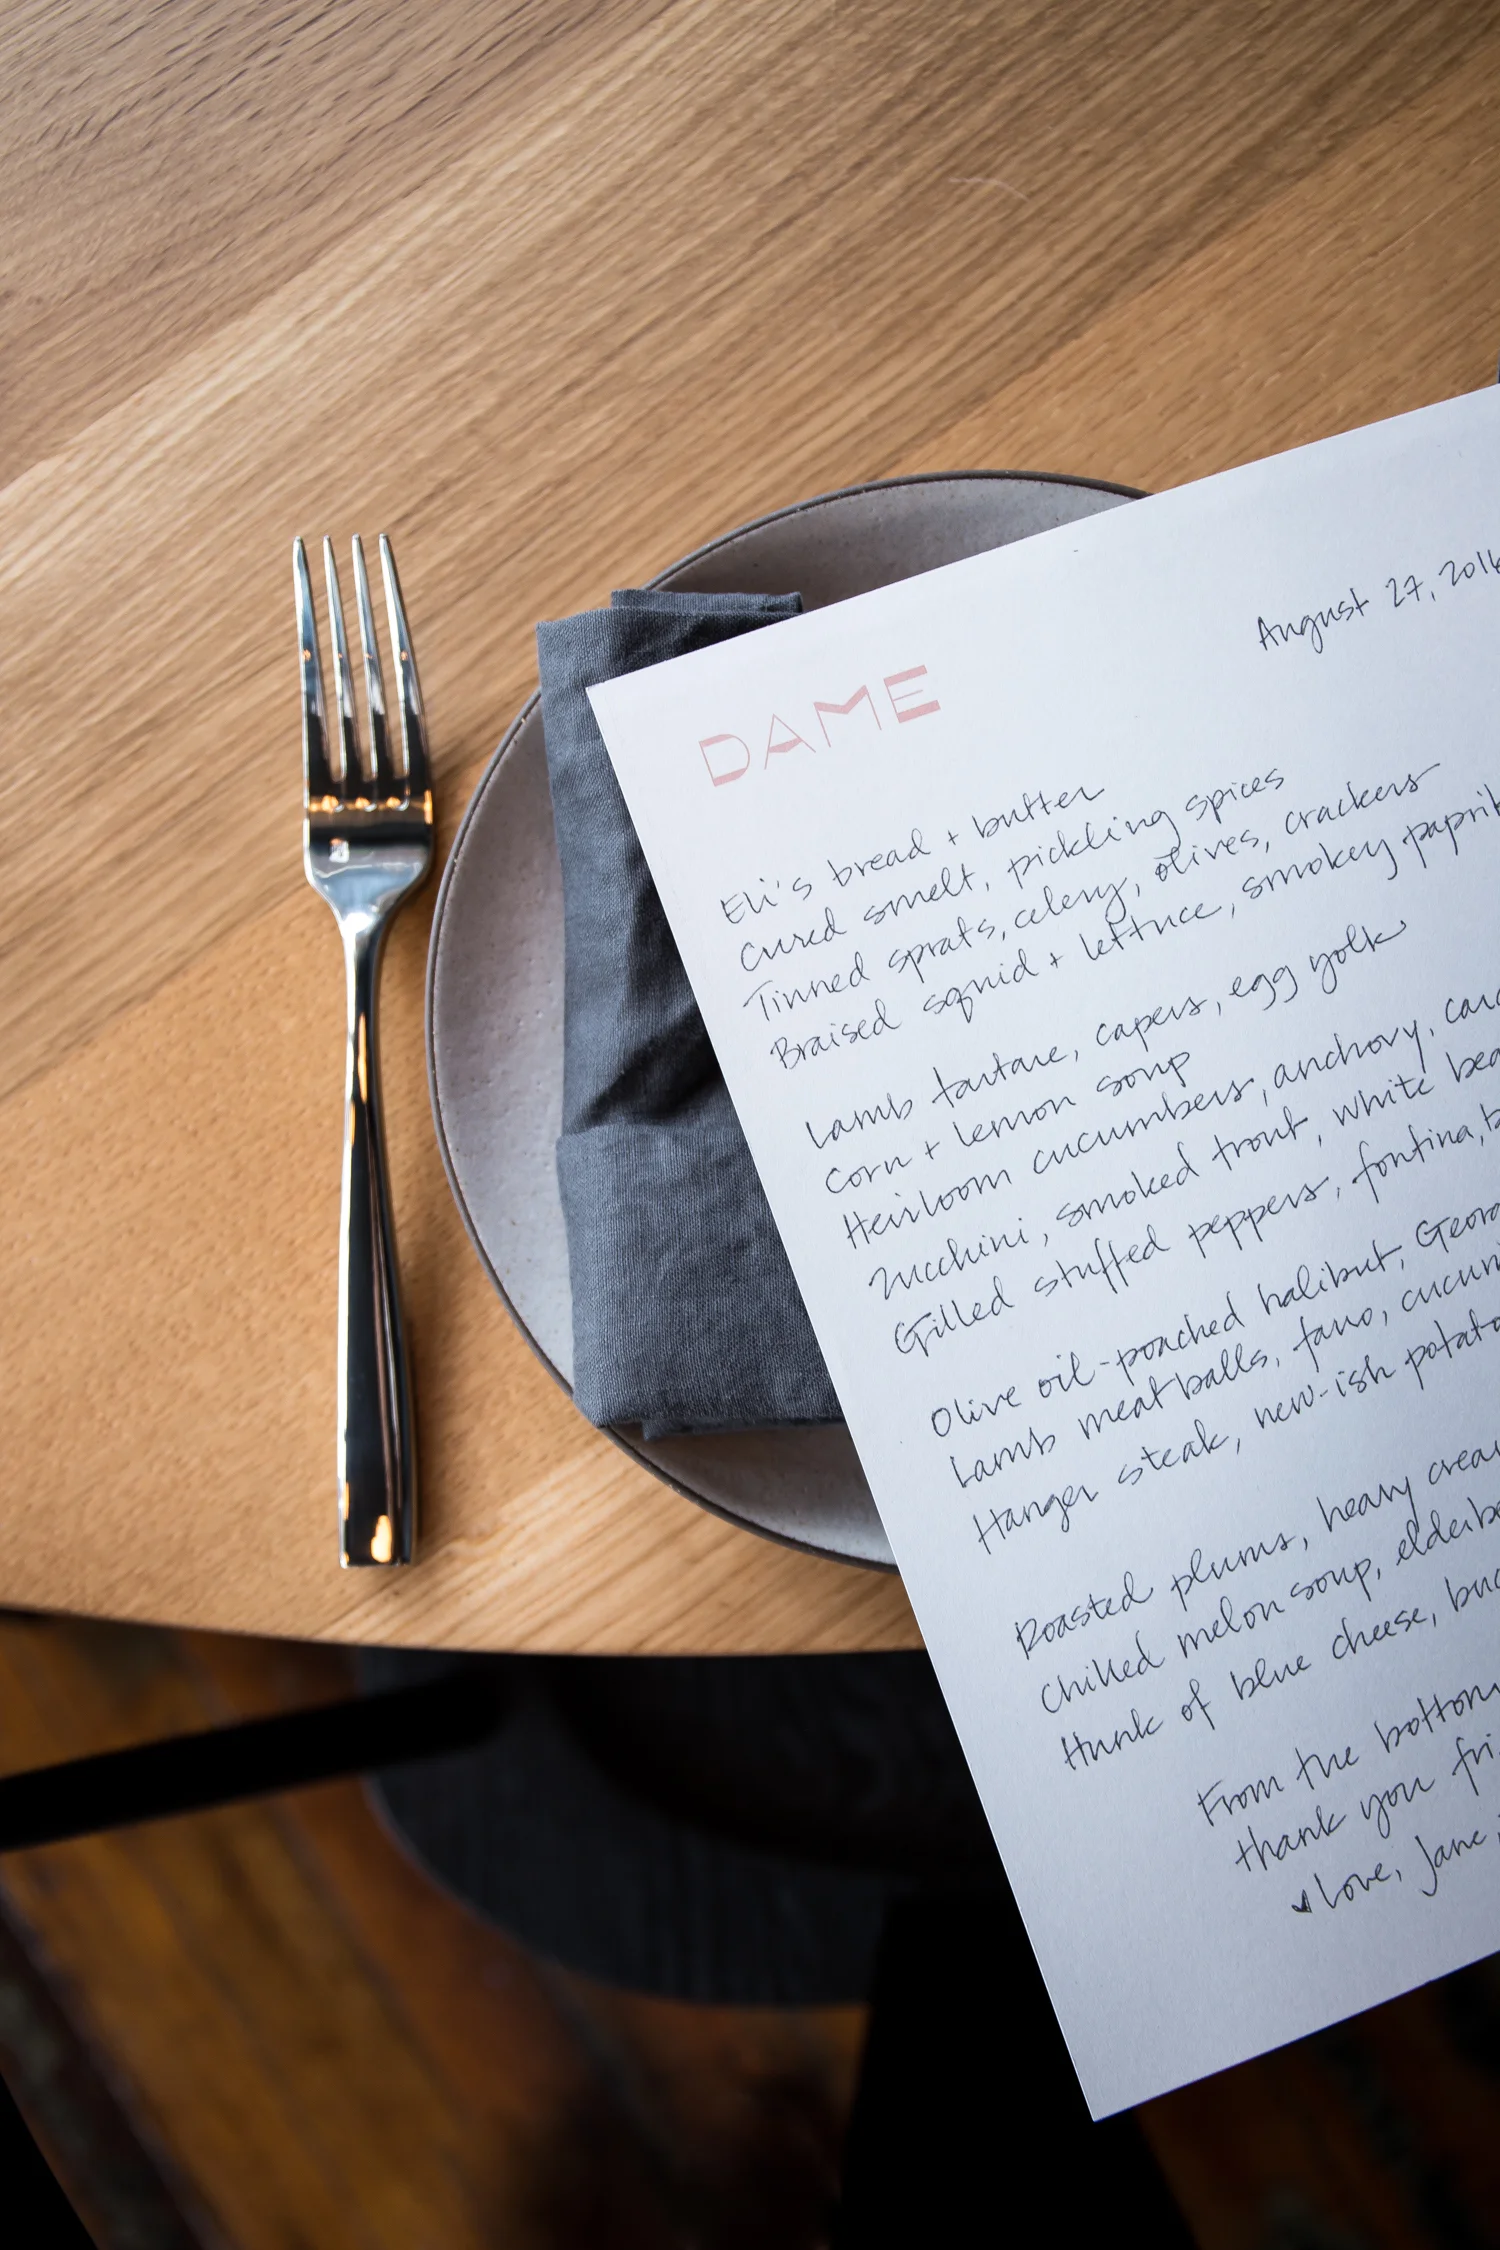 August 27, 2016
DAME
Eli's bread + butter
Cured smelt, pickling spices
Tinned sprats, celery, olives, crackers
Braised squid + lettuce, smokey paprik
Lamb tartare, capers, egg yolk
Corn + lemon soup
Heirloom cucumbers, anchovy,
Zucchini, smoked trout, white bea
Grilled stuffed peppers, fontina, b
Olive oil-poached halibut, Georg
Lamb meatballs, farro, cucum
Hanger steak, new-ish potato
Roasted plums, heavy crea
Chilled melon soup, elderbe
Hunk of blue cheese, buc
From the bottom
thank you fri
♥ Love, Jane,